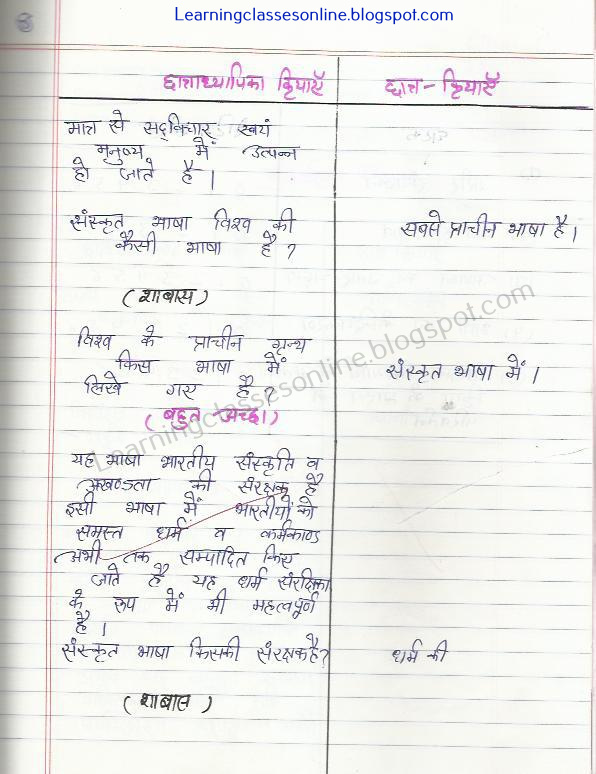 Learningclassesonline.blogspot.com
8
छात्राध्यापिका क्रियाएँ
छात्र - क्रियाएँ
मात्र से सद्विचार स्वयं
मनुष्य में उत्पन्न
हो जाते है।
संस्कृत भाषा विश्व की
कैसी भाषा है?
सबसे प्राचीन भाषा है।
(शाबास)
विश्व के प्राचीन ग्रन्थ
किस भाषा में
लिखे गए है?
संस्कृत भाषा में।
(बहुत अच्छा)
यह भाषा भारतीय संस्कृति व
अखण्डता की संरक्षक है
इसी भाषा में भारतीयों को
समस्त धर्म व कर्मकाण्ड
अभी तक सम्पादित किए
जाते है यह धर्म संरक्षिका
के रूप में भी महत्वपूर्ण
है।
संस्कृत भाषा किसकी संरक्षक है?
धर्म की
(शाबास)
Learningclassesonline.blogspot.com